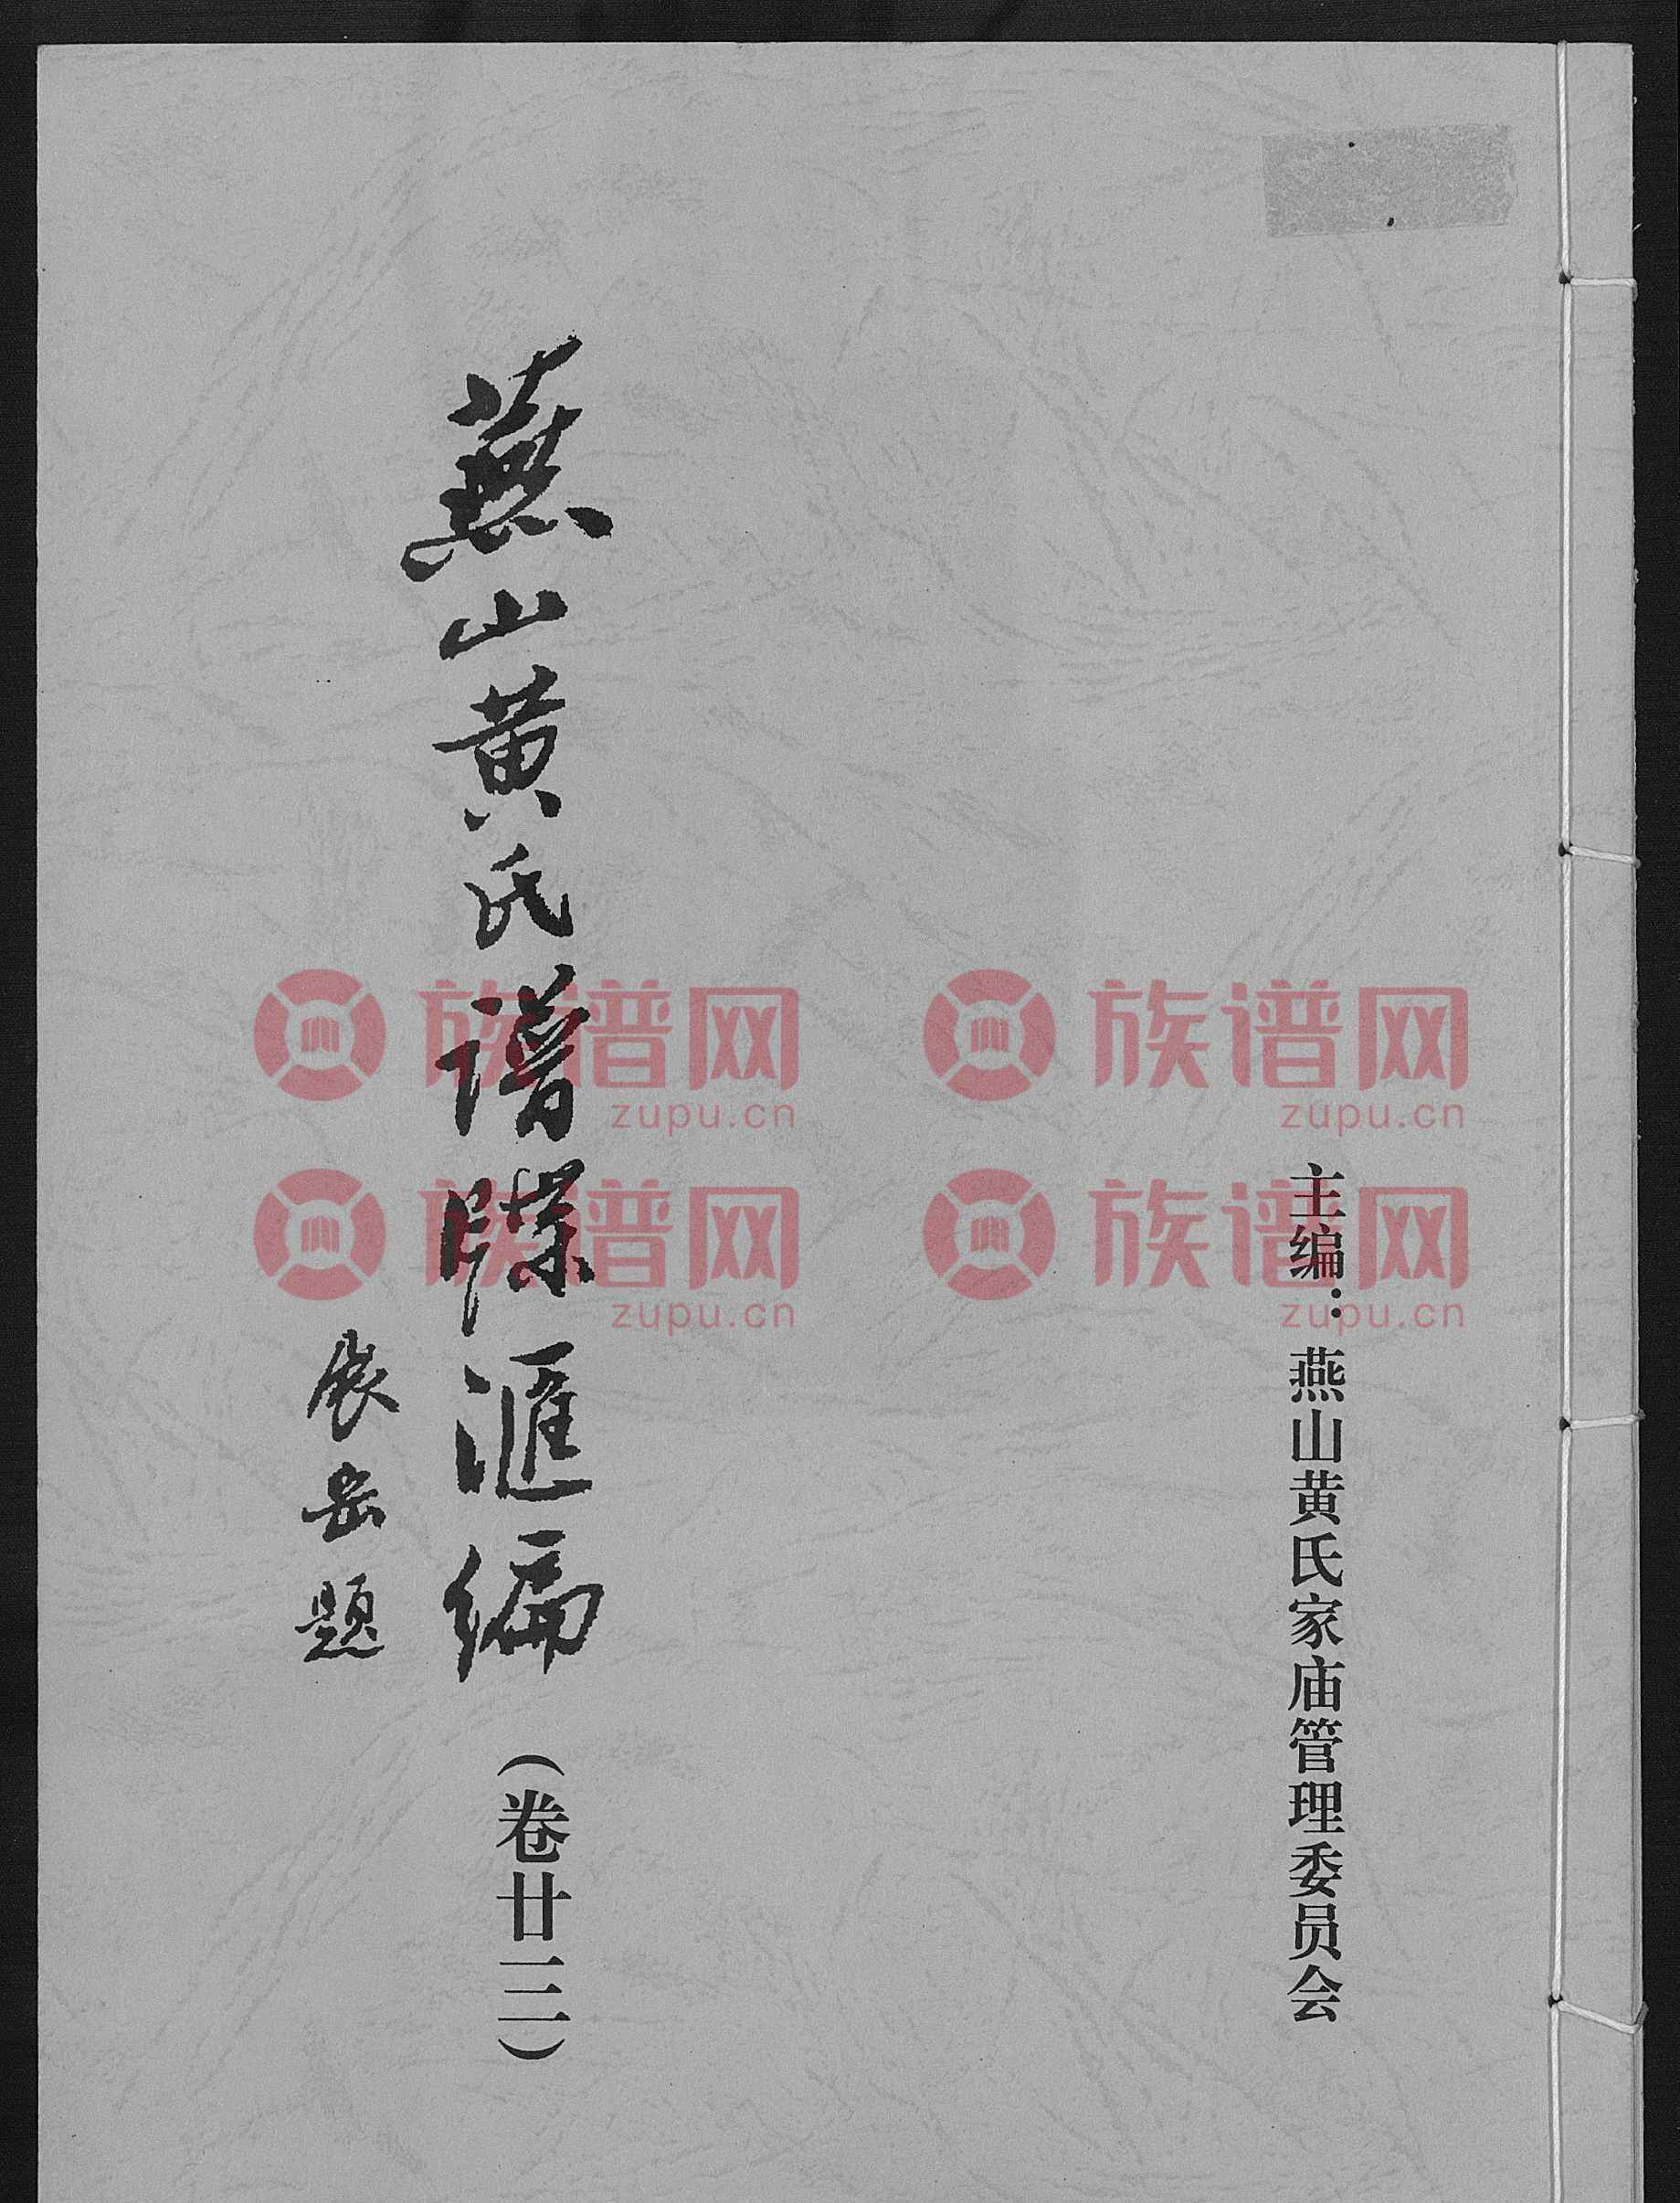 主编：燕山黄氏家庙管理委员会
燕山黄氏谱牒滙编（卷廿三）
展岳题
族谱网 zupu.cn
族谱网 zupu.cn
族谱网 zupu.cn
族谱网 zupu.cn